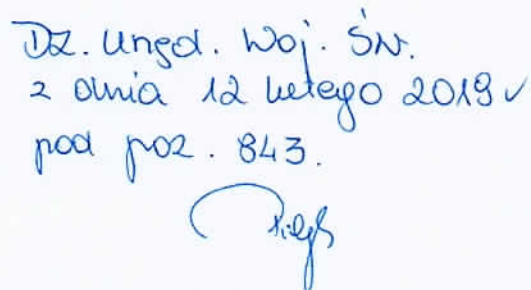 Dz. Urzęd. Woj. Św.
z dnia 12 lutego 2019 r
pod poz. 843.